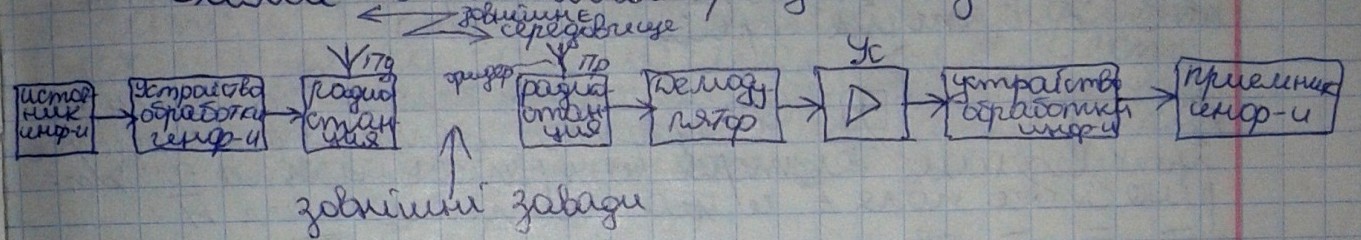 зовнішнє
середовище
источ
ник
инф-и
Устройство
обработки
инф-и
Пд
радио
стан
ция
фидер
Пр
радио
стан
ция
Демоду
лятор
Ус
устройство
обработки
инф-и
приемник
инф-и
зовнішні завади